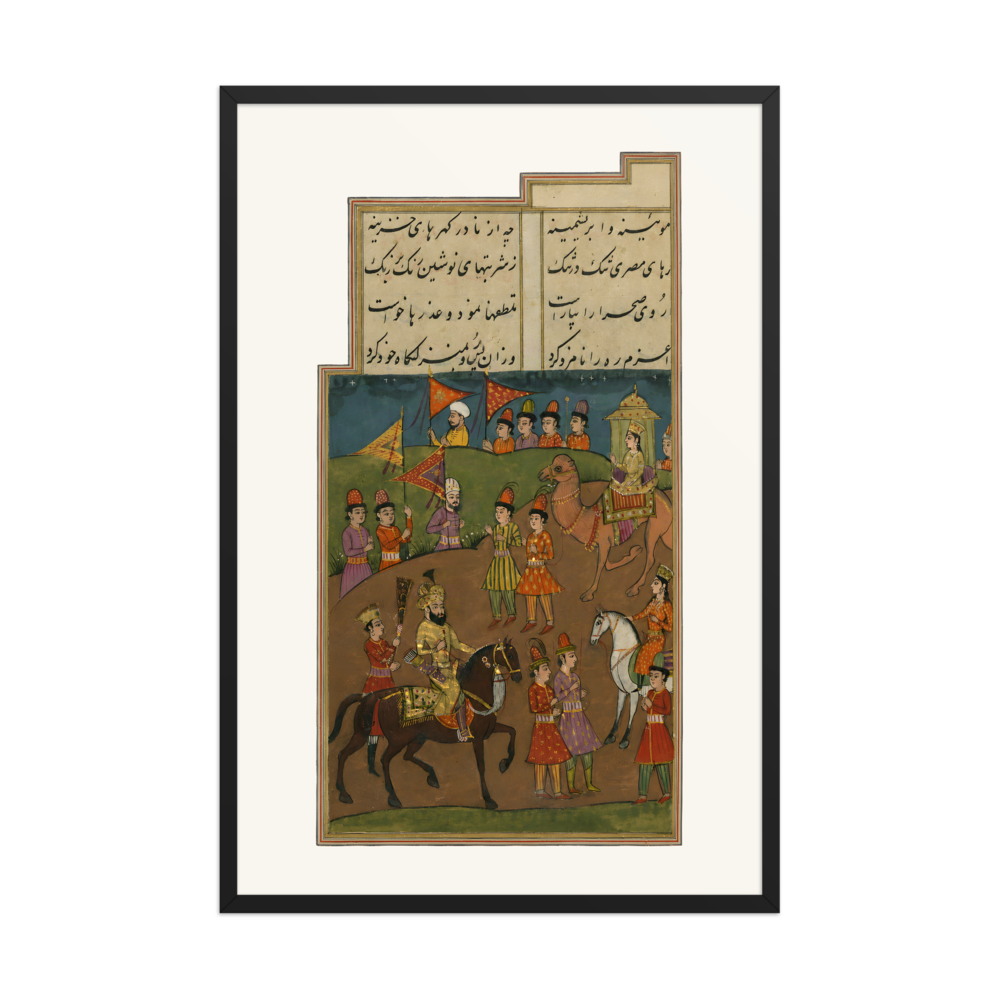 موئینه و ابریشمینه چه از نادر گهرهای خزینه
رهای مصری تنگ در تنگ ز شربتهای نوشین رنگ بر رنگ
روی صحرا را بیاراست تلطفها نمود و عذرها خواست
عزم ره را نامزد کرد وزان پس رو بمنزلگاه خود کرد